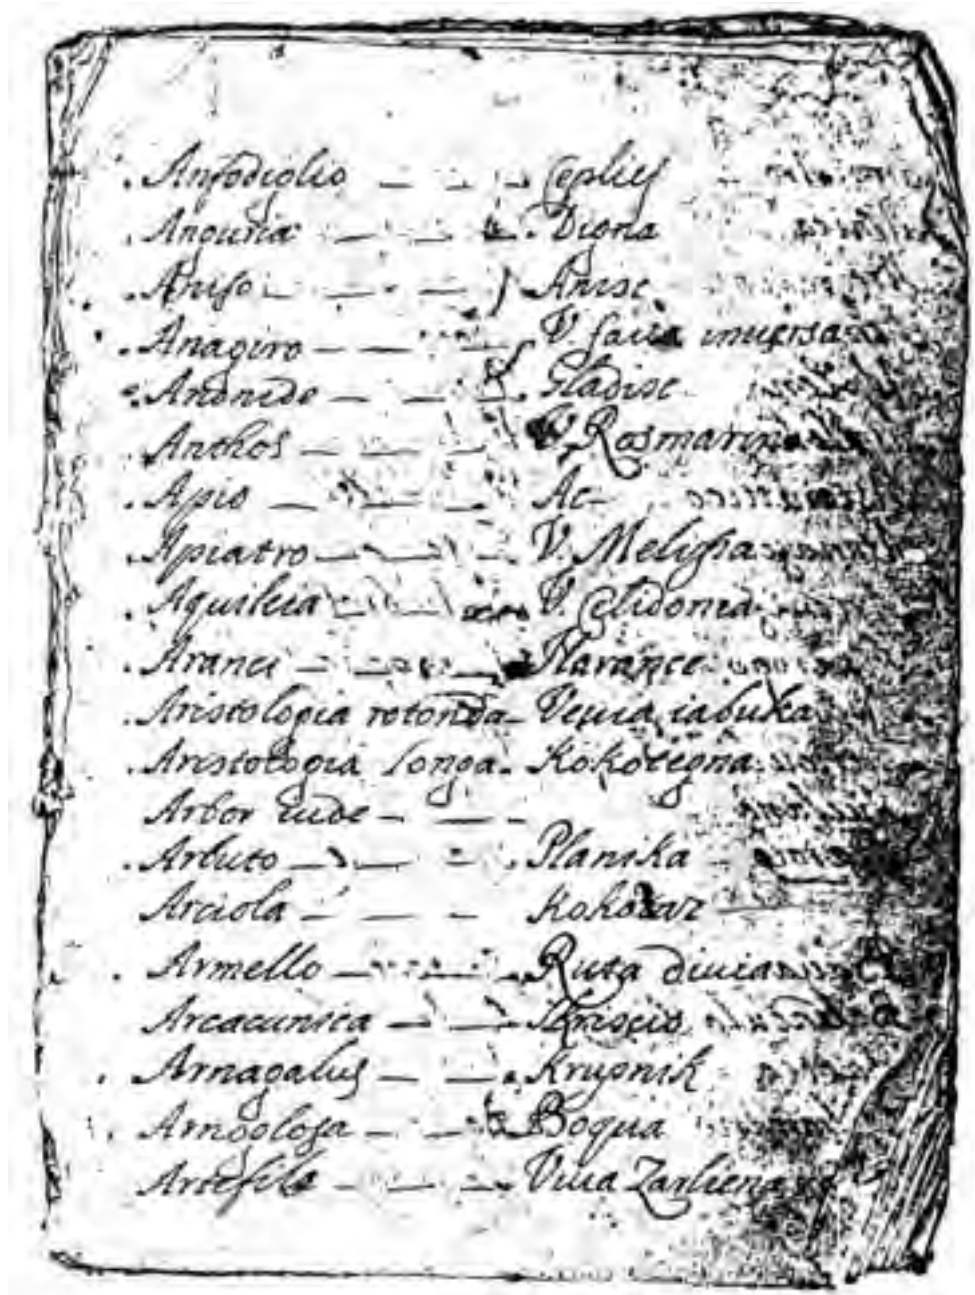 Anfodiglio — — Ceplies
Anguria — — Digna
Aniso — — Anise
Anagiro — — V. faua inuersa
Andrede — — Gladise
Anthos — — V. Rosmarino
Apio — — Ac-
Apiatro — — V. Melissa
Aquileia — — V. Celidonia
Aranci — — Narance
Aristologia rotonda — Veuia iabuka
Aristologia longa. Kokotegna
Arbor iude — —
Arbuto — — Planika
Arciola — — Kokotaz
Armello — — Ruta diuia
Arcacunsca — — Skriscio
Arnagalus — — Krupnik
Arnoglosa — — Boqua
Artefila — — Viua Zarliena